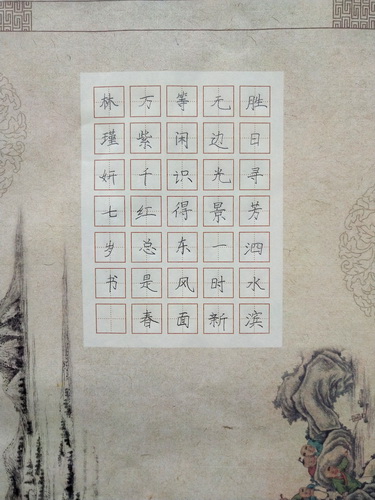 胜日寻芳泗水滨
无边光景一时新
等闲识得东风面
万紫千红总是春
林瑾妍七岁书